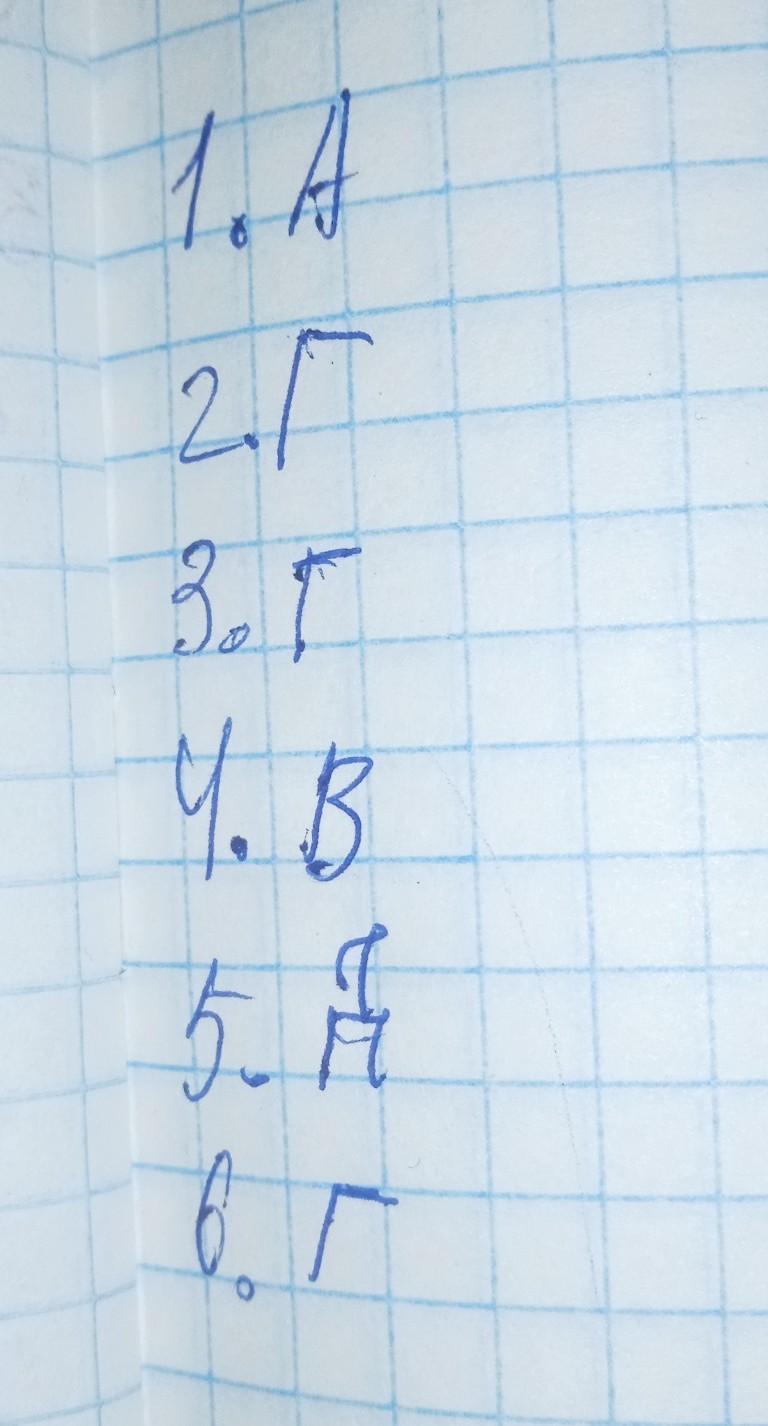 1. А
2. Г
3. Г
4. В
5. Д
6. Г